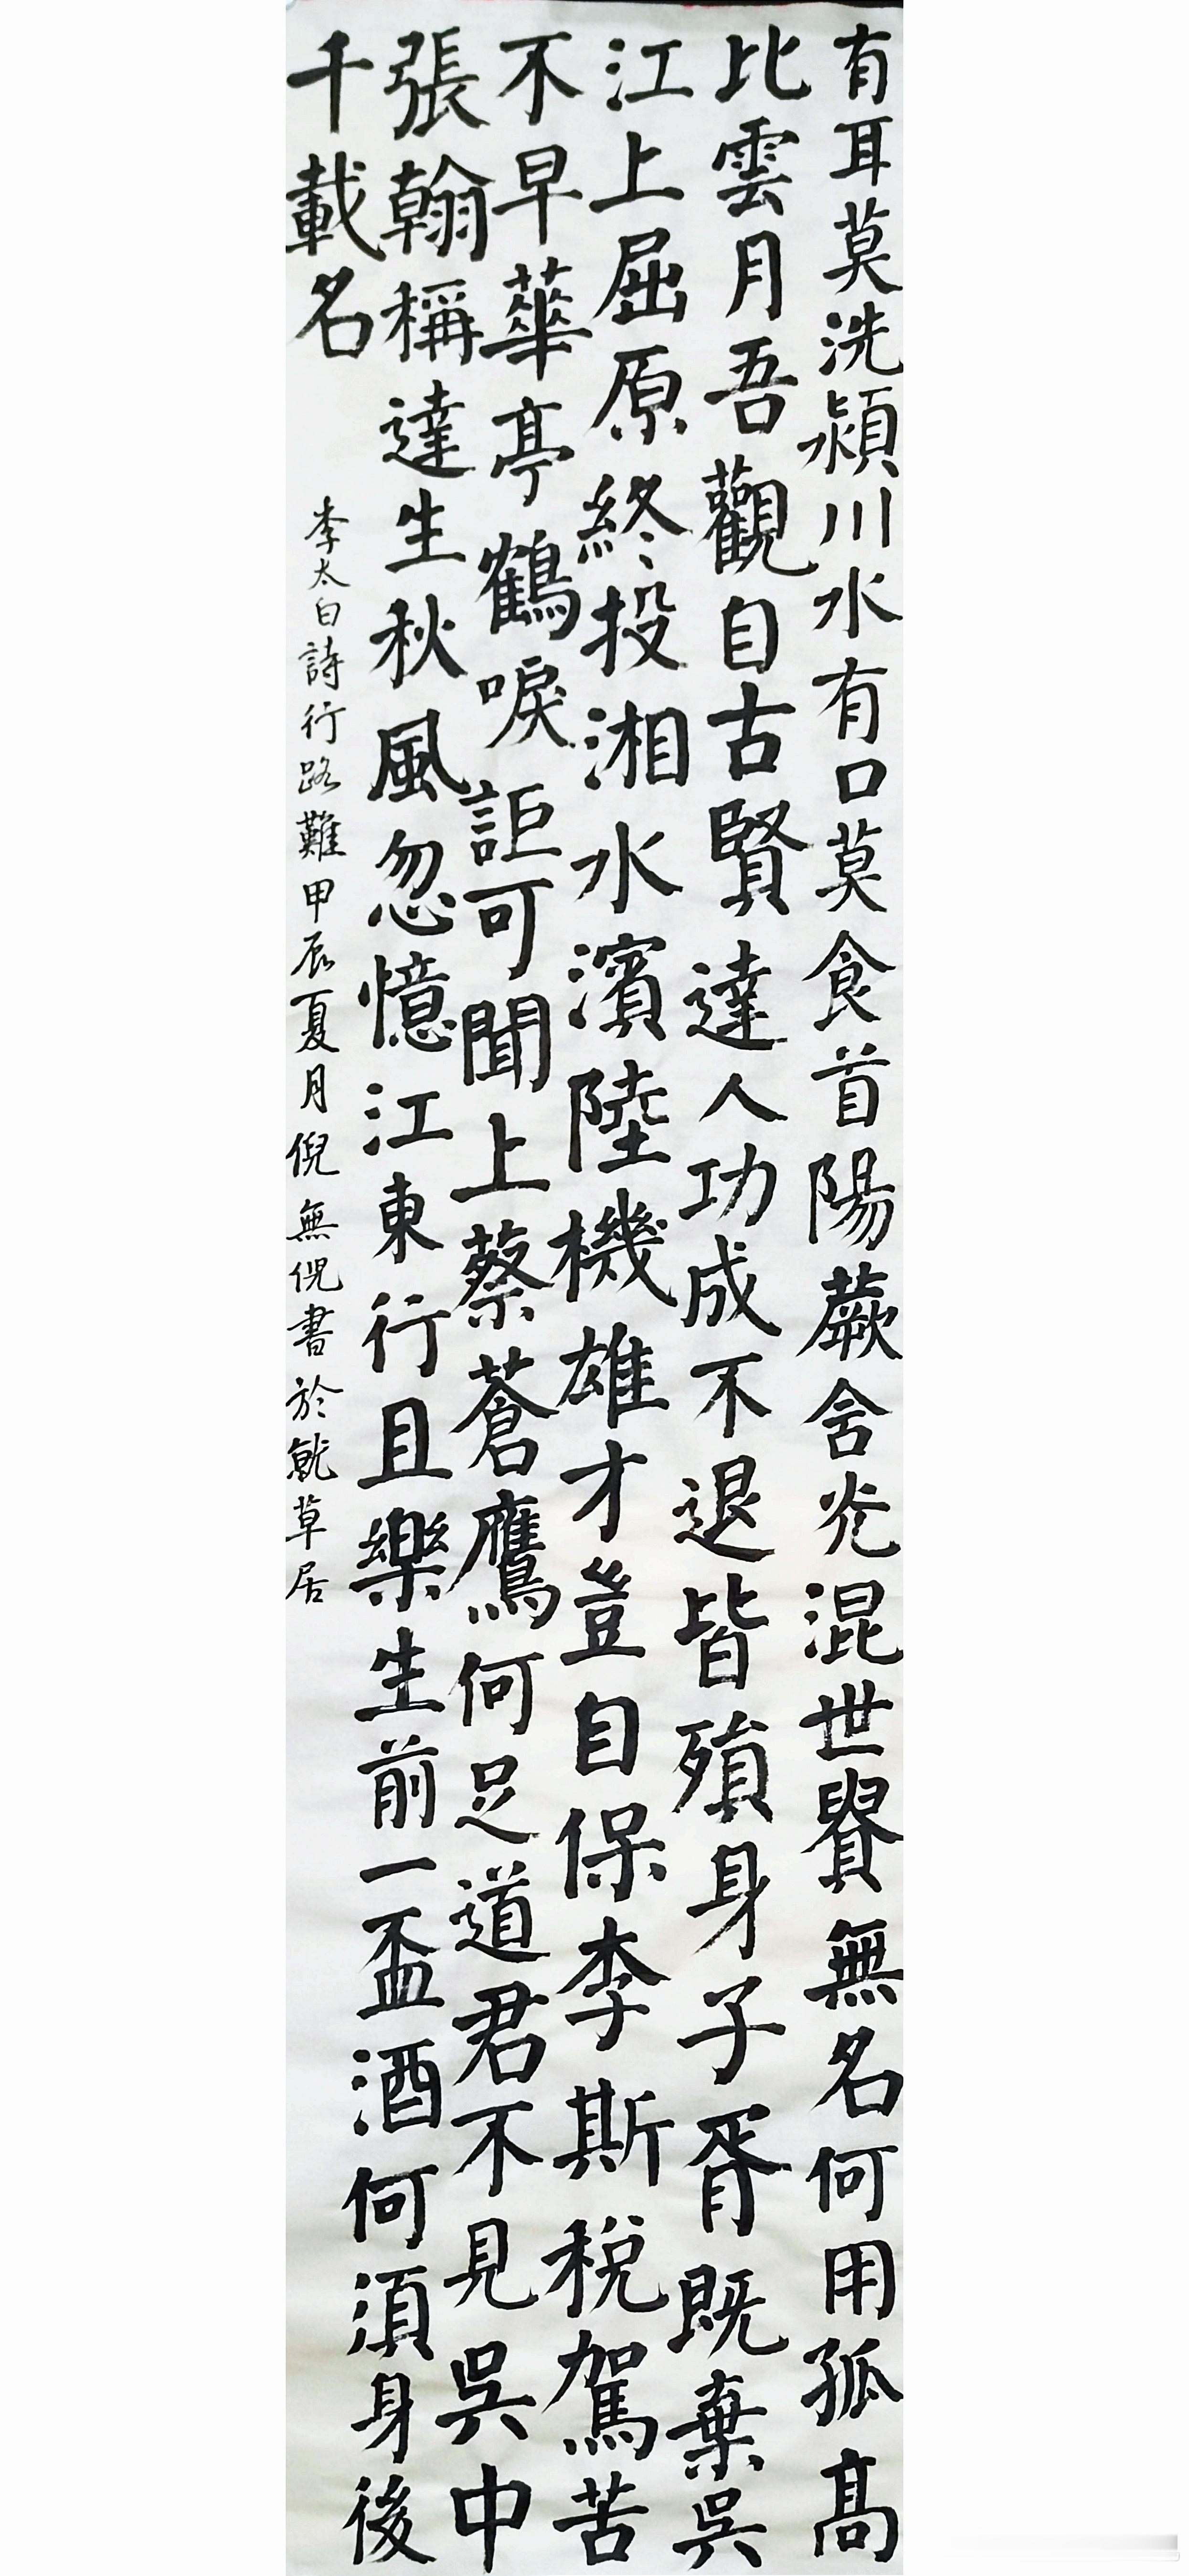 有耳莫洗潁川水有口莫食首陽蕨含光混世貴無名何用孤高
比雲月吾觀自古賢達人功成不退皆殞身子胥既棄吳
江上屈原終投湘水濱陸機雄才豈自保李斯稅駕苦
不早華亭鶴唳詎可聞上蔡蒼鷹何足道君不見吳中
張翰稱達生秋風忽憶江東行且樂生前一盃酒何須身後
千載名
李太白詩行路難甲辰夏月倪無倪書於就草居